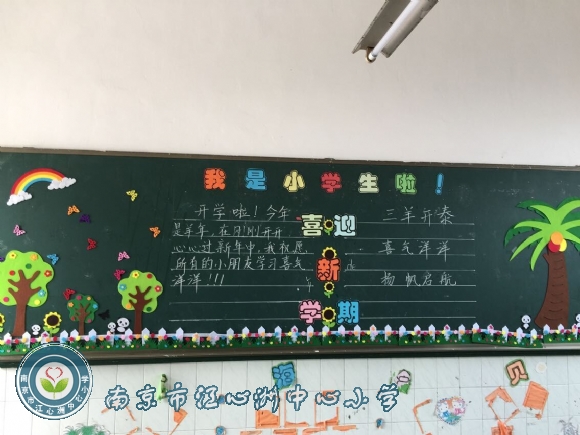 我是小学生啦!
开学啦!今年
是羊年,在刚刚开开
心心过新年中,我祝愿
所有的小朋友学习喜气
洋洋!!!
喜迎
新
学期
三羊开泰
喜气洋洋
扬帆启航
海
合
贝
南京市江心洲中心小学
南京市江心洲中心小学